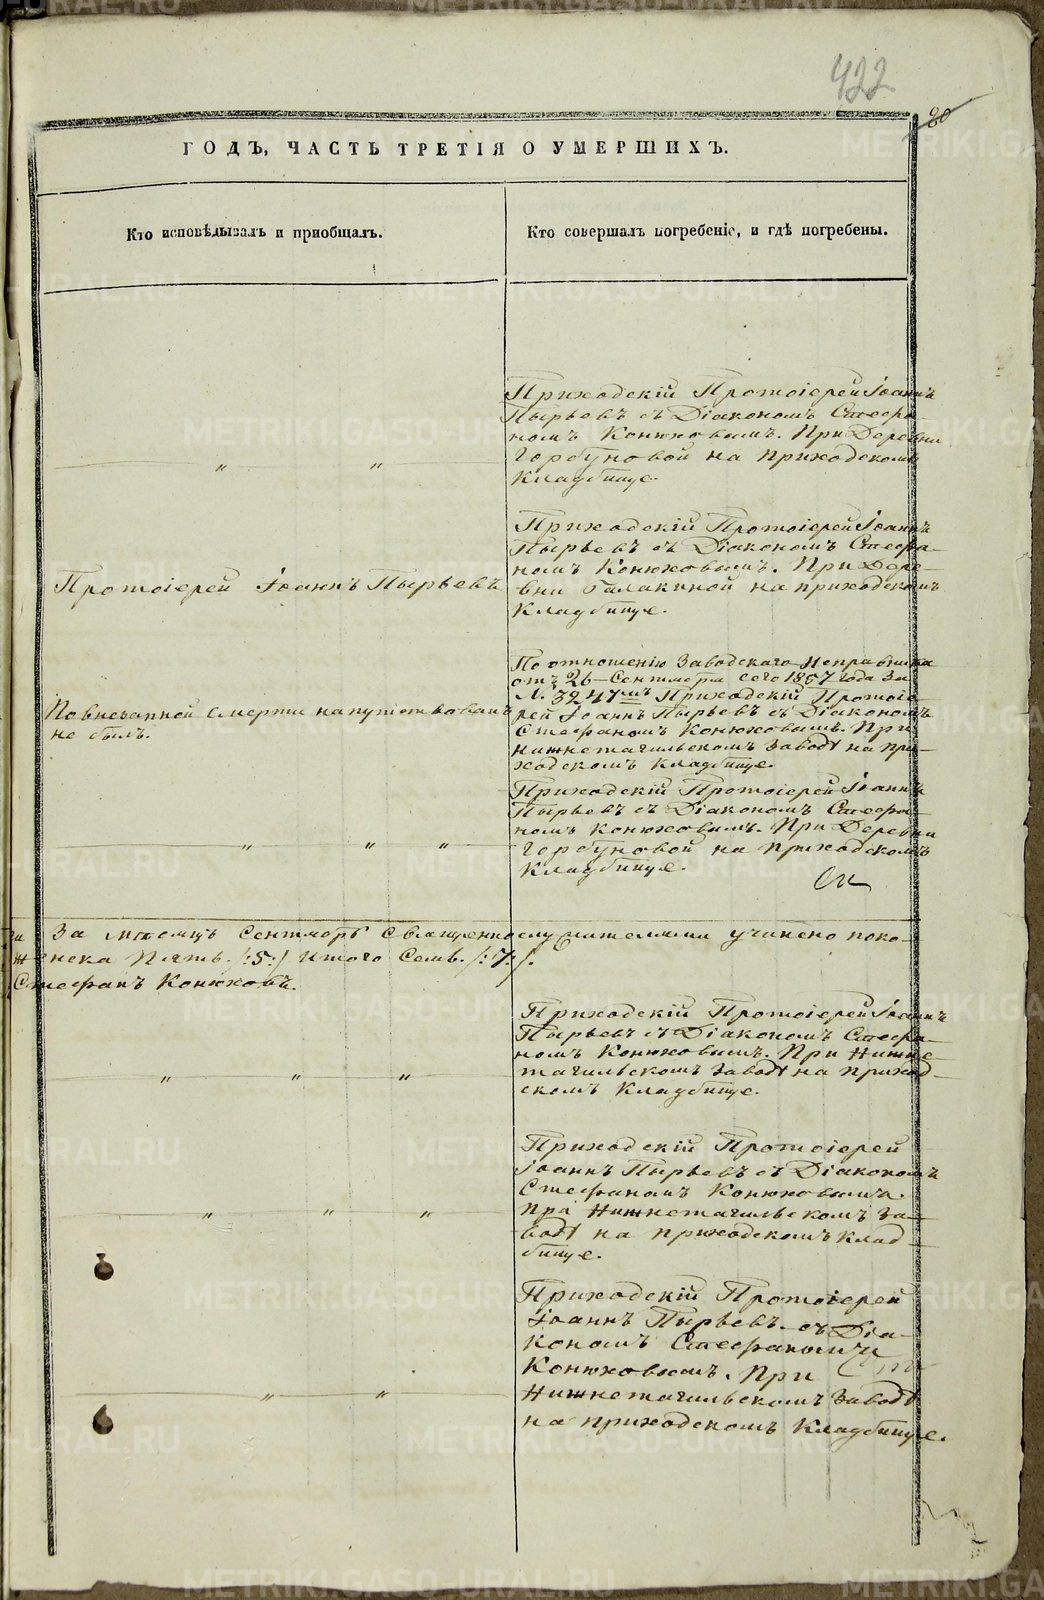 422
80
ГОДЪ, ЧАСТЬ ТРЕТІЯ О УМЕРШИХЪ.
Кто исповѣдывалъ и пріобщалъ.
Кто совершалъ погребеніе, и гдѣ погребены.
Приходскій Протоіерей Іоаннъ
Пырьевъ съ Діакономъ Стефа-
номъ Конюховымъ. При Деревни
Горбуновой на приходскомъ
Кладбище.
Приходскій Протоіерей Іоаннъ
Пырьевъ съ Діакономъ Стефа-
номъ Конюховымъ. При Дере-
вни Галакиной на приходскомъ
Кладбище.
Протоіерей Іоаннъ Пырьевъ
По отношенію Заводскаго Исправника
отъ 26 Сентября сего 1867 года за
№ 3247мъ Приходскій Протоіе-
рей Іоаннъ Пырьевъ съ Діакономъ
Стефаномъ Конюховымъ. При
Нижнетагильскомъ Заводѣ на при-
ходскомъ Кладбище.
По внезапной смерти напутствованъ
не былъ.
Приходскій Протоіерей Іоаннъ
Пырьевъ съ Діакономъ Стефа-
номъ Конюховымъ. При Деревни
Горбуновой на приходскомъ
Кладбище.
За мѣсяцъ Сентябрь священнослужителями учинено
Пять /:5:/ Итого Семь /:7:/.
Стефанъ Конюховъ.
Приходскій Протоіерей Іоаннъ
Пырьевъ съ Діакономъ Стефа-
номъ Конюховымъ. При Нижне-
тагильскомъ Заводѣ на приход-
скомъ Кладбище.
Приходскій Протоіерей
Іоаннъ Пырьевъ съ Діакономъ
Стефаномъ Конюховымъ.
При Нижнетагильскомъ За-
водѣ на приходскомъ клад-
бище.
Приходскій Протоіерей
Іоаннъ Пырьевъ съ Діа-
кономъ Стефаномъ
Конюховымъ. При
Нижнетагильскомъ Заводѣ
на приходскомъ Кладбище.
METRIKI.GASO-URAL.RU